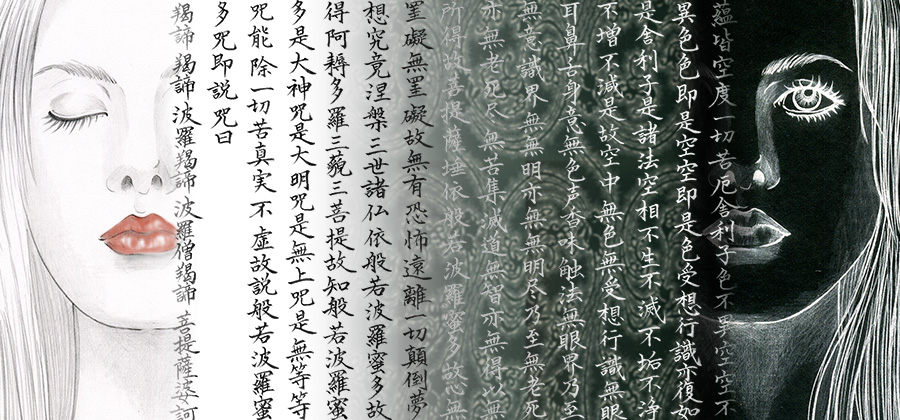 蘊皆空度一切苦厄舎利子色不異空空不
異色色即是空空即是色受想行識亦復如
是舎利子是諸法空相不生不滅不垢不浄
不増不減是故空中無色無受想行識無眼
耳鼻舌身意無色声香味触法無眼界乃至
無意識界無無明亦無無明尽乃至無老死
亦無老死尽無苦集滅道無智亦無得以無
所得故菩提薩埵依般若波羅蜜多故心無
罣礙無罣礙故無有恐怖遠離一切顛倒夢
想究竟涅槃三世諸仏依般若波羅蜜多故
得阿耨多羅三藐三菩提故知般若波羅蜜
多是大神咒是大明咒是無上咒是無等等
咒能除一切苦真実不虚故説般若波羅蜜
多咒即説咒曰
羯諦羯諦波羅羯諦波羅僧羯諦菩提薩婆訶